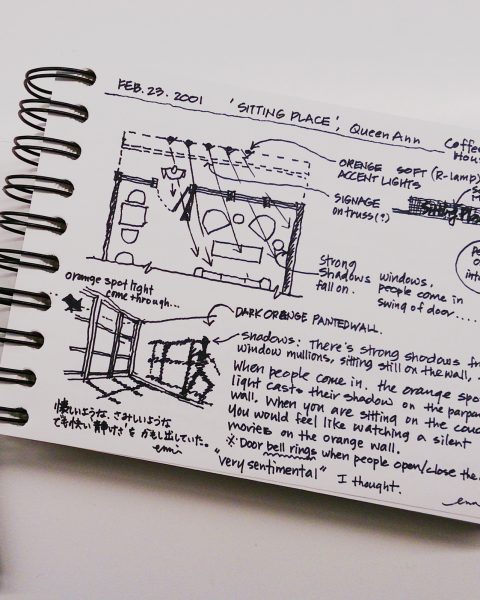 FEB. 23. 2001 'SITTING PLACE', Queen Ann Coffee
Hous
ORENGE SOFT (R-lamp)
ACCENT LIGHTS
SIGNAGE
on truss(?)
strong
shadows
fall on.
windows.
people come in
swing of door....
orange spot light
come through...
DARK ORENGE PAINTED WALL.
shadows: There's strong shadows fr
window mullions, sitting still on the wall,
When people come in. the orange spo
light casts their shadow on the
wall. When you are sitting on the couc
You would feel like watching a silent
movies on the orange wall.
※Door bell rings when people open/close the
"very sentimental" I thought.
懐しいような、さみしいような
でも快い"静けさ"をかもし出していた。
-emi